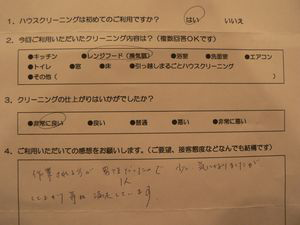 1. ハウスクリーニングは初めてのご利用ですか? はい いいえ
2. 今回ご利用いただいたクリーニング内容は?(複数回答OKです)
●キッチン ●レンジフード(換気扇) ●浴室 ●洗面室 ●エアコン
●トイレ ●窓 ●床 ●引っ越しまるごとハウスクリーニング
●その他( )
3. クリーニングの仕上がりはいかがでしたか?
●非常に良い ●良い ●普通 ●悪い ●非常に悪い
4. ご利用いただいての感想をお願いします。(ご要望、接客態度などなんでも結構です)
作業される方が 1人 少し 気になりましたが
満足しています。